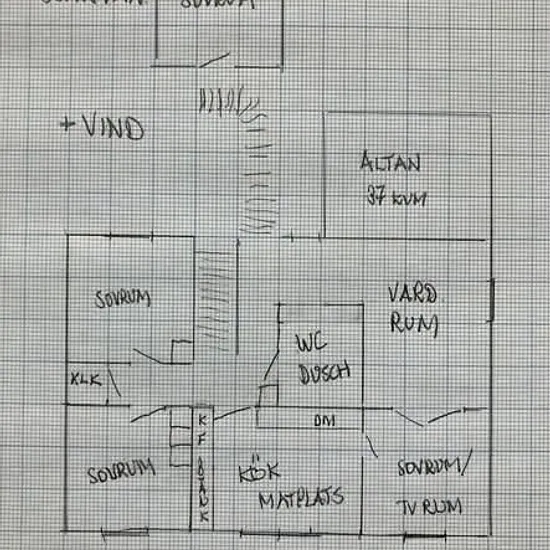 SOVRUM
+ VIND
ALTAN
37 KVM
SOVRUM
VARD
RUM
WC
DUSCH
KLK
K
F
DM
SOVRUM
KÖK
MATPLATS
SOVRUM/
TV RUM